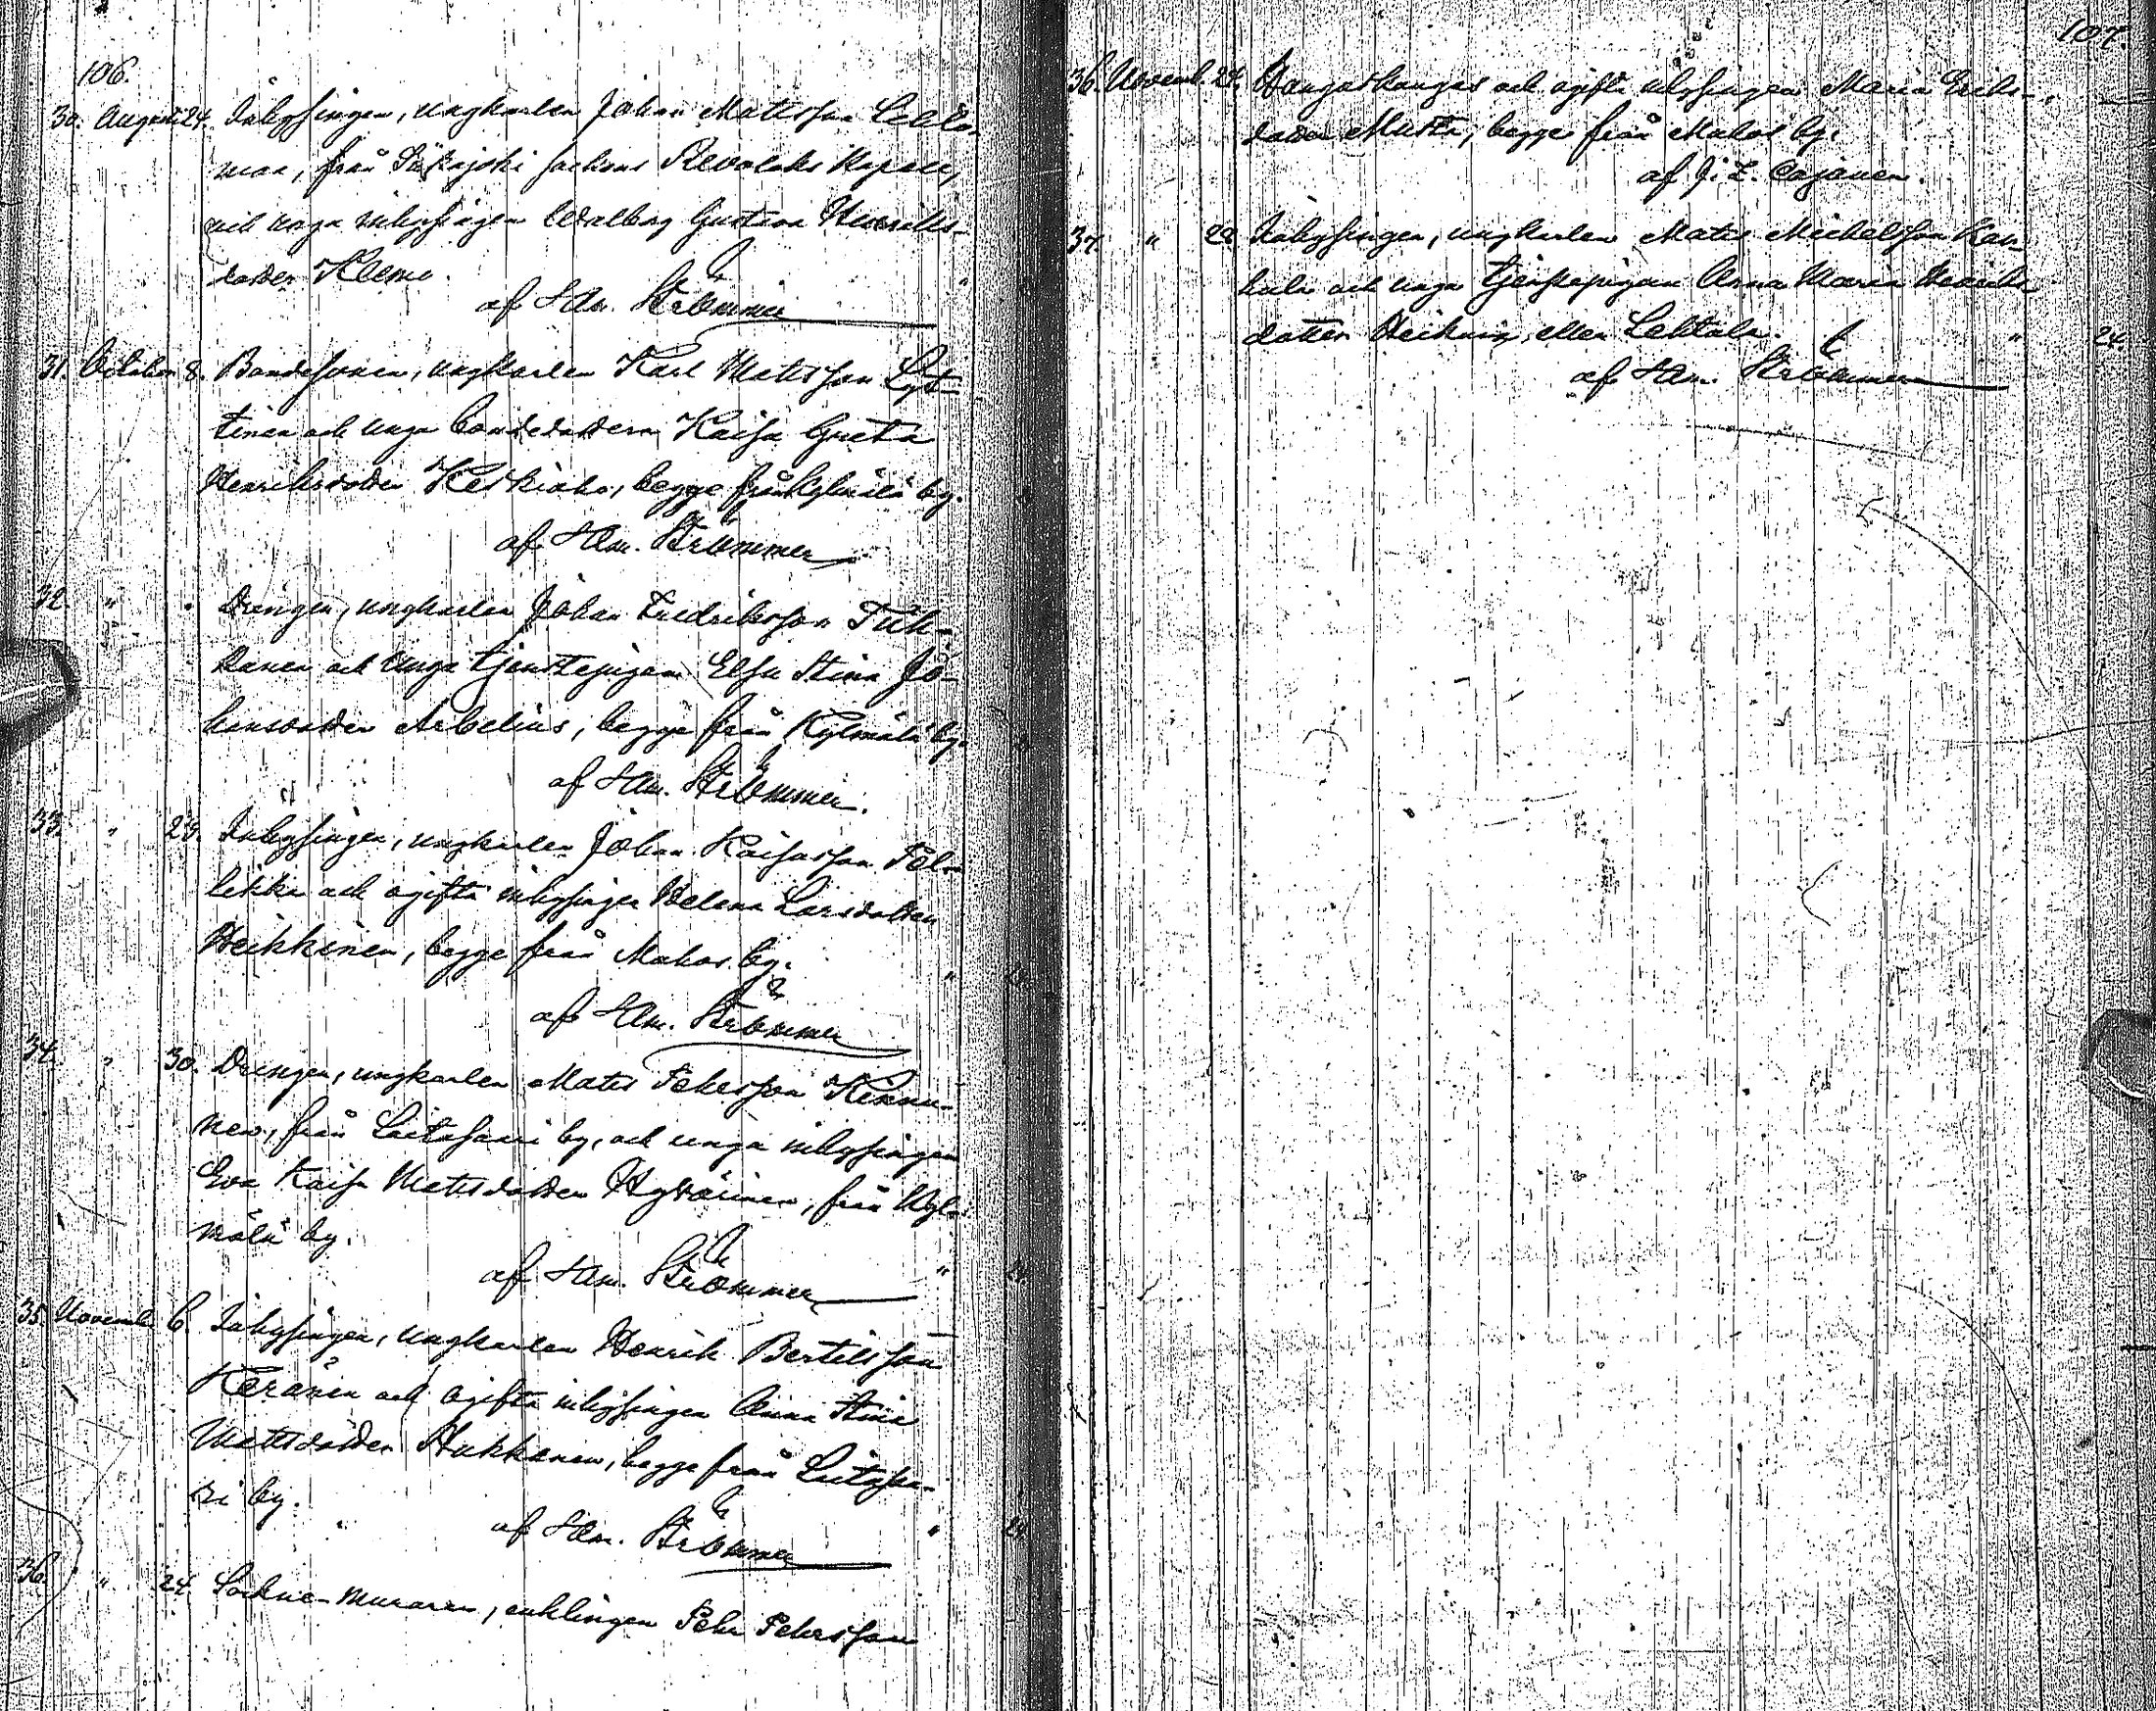 106.
30. Augusti 24. Inhysingen, ungkarlen Johan Mattsson Lehto-
maa, från Siikajoki sockens Rewolaks Kapell,
och unga inhysingen Walborg Gustava Henriks-
dotter Klemo. "
af Hem. Strömmer
31. October 8. Bondesonen, ungkarlen Karl Mattsson Lyt-
tinen och unga bondedottern Kaisa Greta
Henriksdotter Keskiaho, begge från Kylmälä by.
af Hem. Strömmer
32. " " Drengen, ungkarlen Johan Fredriksson Tuh-
kanen och unga tjenstepigan Elsa Stina Jo-
hansdotter Arbelius, begge från Kylmälä by.
af Hem. Strömmer.
33. " 29. Inhysingen, ungkarlen Johan Kaisasson Pel-
likka och ogifta inhysingen Helena Larsdotter
Heikkinen, begge från Muhos by. "
af Hem. Strömmer
34. " 30. Drengen, ungkarlen Matts Pehrsson Kinnu-
nen, från Laitasaari by, och unga inhysingen
Eva Kaisa Mattsdotter Hyvärinen, från Kyl-
mälä by.
af Hem. Strömmer " 24.
35. Novemb. 6. Inhysingen, ungkarlen Henrik Bertilsson
Keränen och ogifta inhysingen Anna Stina
Mattsdotter Hukkanen, begge från Laitasa-
ri by.
af Hem. Strömmer " 24.
36. " 24. Sockne-muraren, enklingen Pehr Pehrsson
107.
36. Novemb. 24. Kangaskangas och ogifta inhysingen Maria Eriks-
dotter Musta, begge från Muhos by.
af J. Z. Cajanen.
37. " 28 Inhysingen, ungkarlen Matts Michelsson Kau-
kula och unga tjenstepigan Anna Maria Henriks-
dotter Heikura, eller Lehtola. " 24.
af Hem. Strömmer